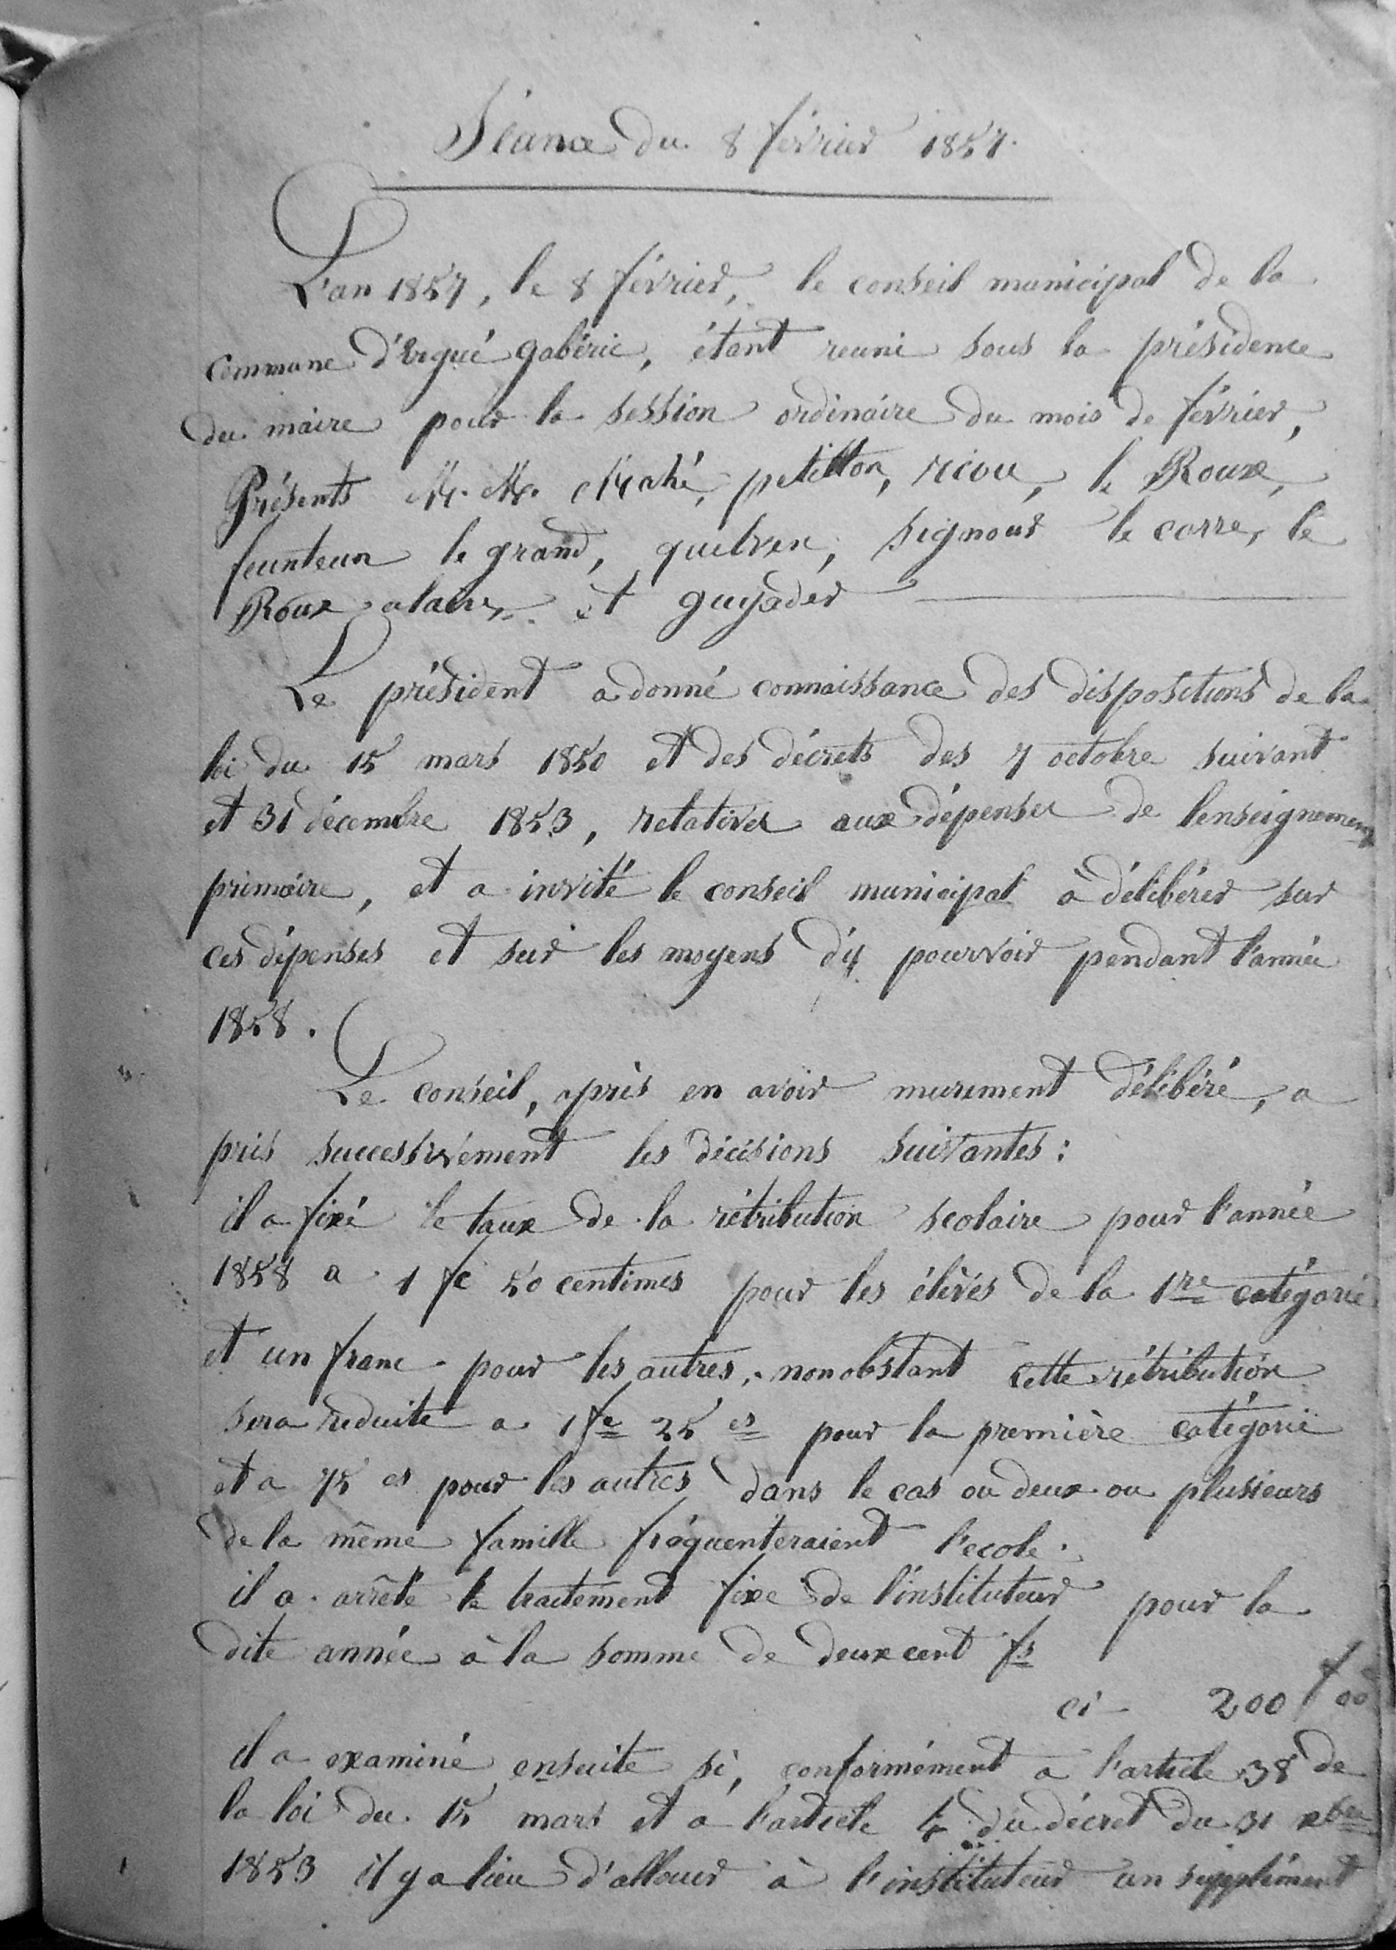 Séance du 8 février 1857.
L'an 1857, le 8 février, le conseil municipal de la
commune d'Ergué gabéric, étant reuni sous la présidence
du maire pour la session ordinaire du mois de février,
Présents M. M. Mahé, petillon, riou, le Roux,
feunteun le grand, quelven, signour le corre, le
Roux alain, et guyader
Le président a donné connaissance des dispositions de la
loi du 15 mars 1850 et des décrets des 7 octobre suivant
et 31 décembre 1853, relatives aux dépenses de l'enseignement
primaire, et a invité le conseil municipal à délibérer sur
ces dépenses et sur les moyens d'y pourvoir pendant l'année
1858.
Le conseil, après en avoir murement délibéré, a
pris successivement les décisions suivantes :
il a fixé le taux de la rétribution scolaire pour l'année
1858 a 1 fc 50 centimes pour les élèves de la 1re catégorie
et un franc pour les autres, nonobstant cette rétribution
sera reduite a 1 fc 25 es pour la première catégorie
et a 75 es pour les autres dans le cas ou deux ou plusieurs
de la même famille fréquenteraient l'ecole.
il a arrêté le traitement fixe de l'instituteur pour la
dite année à la somme de deux cent fs
ci 200 f 00
il a examiné ensuite si, conformément a l'article 38 de
la loi du 15 mars et a l'article 4 du décret du 31 xbre
1853 il y a lieu d'allouer à l'instituteur un supplément